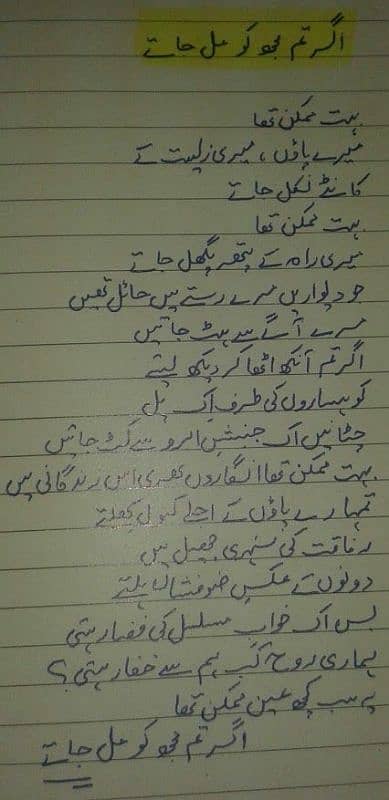 اگر تم مجھ کو مل جاتے
بہت ممکن تھا
میرے پاؤں ، میری زیست کے
کانٹے نکل جاتے
بہت ممکن تھا
میری راہ کے پتھر پگھل جاتے
جو دیواریں میرے رستے میں حائل تھیں
میرے آگے سے ہٹ جاتیں
اگر تم آنکھ اٹھا کر دیکھ لیتے
کوہساروں کی طرف اک پل
چٹانیں اک جنبشِ ابرو سے کٹ جاتیں
بہت ممکن تھا انگاروں بھری اس زندگانی میں
تمہارے پاؤں کے اجلے کنول کھلتے
رفاقت کی سنہری جھیل میں
دونوں کے عکسِ ضوفشاں ملتے
بس اک خواب مسلسل کی فضا رہتی
ہماری روح کب ہم سے خفا رہتی؟
یہ سب کچھ عین ممکن تھا
اگر تم مجھ کو مل جاتے